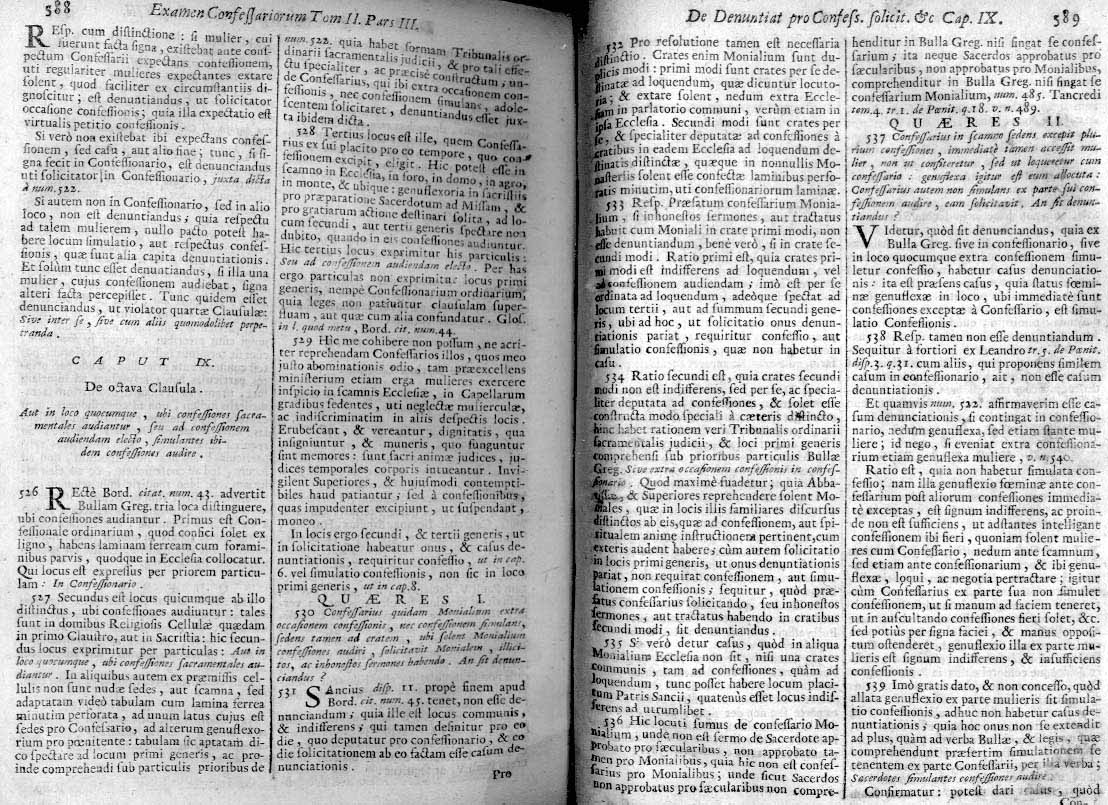 588 Examen Confessariorum Tom II. Pars III.
REsp. cum distinctione: si mulier, cui
fuerunt facta signa, existebat ante cons-
pectum Confessarii expectans confessionem,
uti regulariter mulieres expectantes extare
solent, quod faciliter ex circumstantiis di-
gnoscitur; est denuntiandus, ut solicitator
occasione confessionis; quia illa expectatio est
virtualis petitio confessionis.
Si verò non existebat ibi expectans confes-
sionem, sed casu, aut alio fine; tunc, si si-
gna fecit in Confessionario, est denunciandus
uti solicitator in Confessionario, juxta dicta
à num. 522.
Si autem non in Confessionario, sed in alio
loco, non est denuntiandus; quia respectu
ad talem mulierem, nullo pacto potest ha-
bere locum simulatio, aut respectus confes-
sionis, quæ sunt alia capita denuntiationis.
Et solùm tunc esset denuntiandus, si illa una
mulier, cujus confessionem audiebat, signa
alteri facta percepisset. Tunc quidem esset
denunciandus, ut violator quartæ Clausulæ:
Sive inter se, sive cum aliis quomodolibet perpe-
tranda.
CAPUT IX.
De octava Clausula.
Aut in loco quocumque, ubi confessiones sacra-
mentales audiantur, seu ad confessionem
audiendam electo, simulantes ibi-
dem confessiones audire.
526 REctè Bord. citat. num. 43. advertit
Bullam Greg. tria loca distinguere,
ubi confessiones audiantur. Primus est Con-
fessionale ordinarium, quod confici solet ex
ligno, habens laminam ferream cum forami-
nibus parvis, quodque in Ecclesia collocatur.
Qui locus est expressus per priorem particu-
lam: In Confessionario.
527 Secundus est locus quicumque ab illo
distinctus, ubi confessiones audiuntur: tales
sunt in domibus Religiosis Cellulæ quædam
in primo Claustro, aut in Sacristia: hic secun-
dus locus exprimitur per particulas: Aut in
loco quocumque, ubi confessiones sacramentales au-
diantur. In aliquibus autem ex præmissis cel-
lulis non sunt nudæ sedes, aut scamna, sed
adaptatam video tabulam cum lamina ferrea
minutim periorata, ad unum latus cujus est
sedes pro Confessario, ad alterum genuflexo-
rium pro pœnitente: tabulam sic aptatam di-
co spectare ad locum primi generis, ac pro-
inde comprehendi sub particulis prioribus de
num. 522. quia habet formam Tribunalis or-
dinarii sacramentalis judicii, & pro tali effe-
ctu specialiter, ac præcisè constructum, un-
de Confessarius, qui ibi extra occasionem con-
fessionis, nec confessionem simulans, adole-
scentem solicitaret, denuntiandus esset jux-
ta ibidem dicta.
528 Tertius locus est ille, quem Confessa-
rius ex sui placito pro eo tempore, quo con-
fessionem excipit, eligit. Hic potest esse in
scamno in Ecclesia, in foro, in domo, in agro,
in monte, & ubique: genuflexoria in sacristiis
pro præparatione Sacerdotum ad Missam, &
pro gratiarum actione destinari solita, ad lo-
cum secundi, aut tertii generis spectare non
dubito, quando in eis confessiones audiuntur.
Hic tertius locus exprimitur his particulis:
Seu ad confessionem audiendam electo. Per has
ergo particulas non exprimitur locus primi
generis, nempè Confessionarium ordinarium,
quia leges non patiuntur clausulam super-
fluam, aut quæ cum alia confundatur. Glos.
in l. quod metu, Bord. cit. num. 44.
529 Hic me cohibere non possum, ne acri-
ter reprehendam Confessarios illos, quos meo
justo abominationis odio, tam præexcellens
ministerium etiam erga mulieres exercere
inspicio in scamnis Ecclesiæ, in Capellarum
gradibus sedentes, uti neglectæ mulierculæ,
ac indiscriminatim in aliis despectis locis.
Erubescant, & vereantur, dignitatis, qua
insigniuntur, & muneris, quo funguntur
sint memores: sunt sacri animæ judices, ju-
dices temporales corporis intueantur. Invi-
gilent Superiores, & hujusmodi contempti-
biles haud patiantur; sed à confessionibus,
quas impudenter excipiunt, ut suspendant,
moneo.
In locis ergo secundi, & tertii generis, ut
in solicitatione habeatur onus, & casus de-
nuntiationis, requiritur confessio, ut in cap.
6. vel simulatio confessionis, non sic in loco
primi generis, ut in cap. 8.
QUÆRES I.
530 Confessarius quidam Monialium extra
occasionem confessionis, nec confessionem simulans,
sedens tamen ad cratem, ubi solent Monialium
confessiones audiri, solicitavit Monialem, illici-
tos, ac inhonestos sermones habendo. An sit denun-
ciandus?
531 SAncius disp. 11. propè finem apud
Bord. cit. num. 45. tenet, non esse de-
nunciandum; quia ille est locus communis,
& indifferens; qui tamen definitur pro eo
die, quo deputatur pro confessionario, & eo
die solicitationem ab eo factam esse casum de-
nunciationis.
Pro
De Denuntiat pro Confess. solicit. &c Cap. IX. 589
532 Pro resolutione tamen est necessaria
distinctio. Crates enim Monialium sunt du-
plicis modi: primi modi sunt crates per se de-
stinatæ ad loquendum, quæ dicuntur locuto-
ria; & extare solent, nedum extra Eccle-
siam in parlatorio communi, verùm etiam in
ipsa Ecclesia. Secundi modi sunt crates per
se, & specialiter deputatæ ad confessiones à
cratibus in eadem Ecclesia ad loquendum de-
stinatis distinctæ, quæque in nonnullis Mo-
nasteriis solent esse confectæ laminibus perfo-
ratis minutim, uti confessionariorum laminæ.
533 Resp. Præfatum confessarium Monia-
lium, si inhonestos sermones, aut tractatus
habuit cum Moniali in crate primi modi, non
esse denuntiandum, benè verò, si in crate se-
cundi modi. Ratio primi est, quia crates pri-
mi modi est indifferens ad loquendum, vel
ad confessionem audiendam; imò est per se
ordinata ad loquendum, adeòque spectat ad
locum tertii, aut ad summum secundi gene-
ris, ubi ad hoc, ut solicitatio onus denun-
tiationis pariat, requiritur confessio, aut
simulatio confessionis, quæ non habetur in
casu.
534 Ratio secundi est, quia crates secundi
modi non est indifferens, sed per se, ac specia-
liter deputata ad confessiones, & solet esse
constructa modo speciali à cæteris distincto,
hinc habet rationem veri Tribunalis ordinarii
sacramentalis judicii, & loci primi generis
comprehensi sub prioribus particulis Bullæ
Greg. Sive extra occasionem confessionis in confes-
sionario. Quod maximè suadetur; quia Abba-
tissæ, & Superiores reprehendere solent Mo-
niales, quæ in locis illis familiares discursus
distinctos ab eis, quæ ad confessionem, aut spi-
ritualem animæ instructionem pertinent, cum
exteris audent habere; cùm autem solicitatio
in locis primi generis, ut onus denuntiationis
pariat, non requirat confessionem, aut simu-
lationem confessionis; sequitur, quòd præ-
fatus confessarius solicitando, seu inhonestos
sermones, aut tractatus habendo in cratibus
secundi modi, sit denuntiandus.
535 Si verò detur casus, quòd in aliqua
Monialium Ecclesia non sit, nisi una crates
communis, tam ad confessiones, quàm ad
loquendum, tunc posset habere locum placi-
tum Patris Sancii, quatenùs esset locus indif-
ferens ad utrumlibet.
536 Hic locuti sumus de confessario Mo-
nialium, unde non est sermo de Sacerdote ap-
probato pro sæcularibus, non approbato ta-
men pro Monialibus, quia hic non est confes-
sarius pro Monialibus; unde sicut Sacerdos
non approbatus pro sæcularibus non compre-
henditur in Bulla Greg. nisi fingat se confes-
sarium; ita neque Sacerdos approbatus pro
sæcularibus, non approbatus pro Monialibus,
comprehenditur in Bulla Greg. nisi fingat se
confessarium Monialium, num. 485. Tancredi
tom. 4. tr. 1. de Pœnit. q. 18. v. n. 489.
QUÆRES II.
537 Confessarius in scamno sedens excepit plu-
rium confessiones, immediatè tamen accessit mu-
lier, non ut confiteretur, sed ut loqueretur cum
confessario: genuflexa igitur est eum allocuta:
Confessarius autem non simulans ex parte sui con-
fessionem audire, eam solicitavit. An sit denun-
tiandus?
VIdetur, quòd sit denunciandus, quia ex
Bulla Greg. sive in confessionario, sive
in loco quocumque extra confessionem simu-
letur confessio, habetur casus denunciatio-
nis: ita est præsens casus, quia status fœmi-
næ genuflexæ in loco, ubi immediatè sunt
confessiones exceptæ à Confessario, est simu-
latio Confessionis.
538 Resp. tamen non esse denuntiandum.
Sequitur à fortiori ex Leandro tr. 5. de Pœnit.
disp. 3. q. 31. cum aliis, qui proponens similem
casum in confessionario, ait, non esse casum
denuntiationis.
Et quamvis num. 522. affirmaverim esse ca-
sum denunciationis, si contingat in confessio-
nario, nedum genuflexa, sed etiam stante mu-
liere; id nego, si eveniat extra confessiona-
rium etiam genuflexa muliere, v. n. 540.
Ratio est, quia non habetur simulata con-
fessio; nam illa genuflexio fœminæ ante con-
fessarium post aliorum confessiones immedia-
tè exceptas, est signum indifferens, ac proin-
de non est sufficiens, ut adstantes intelligant
confessionem ibi fieri, quoniam solent mulie-
res cum Confessario, nedum ante scamnum,
sed etiam ante confessionarium, & ibi genu-
flexæ, loqui, ac negotia pertractare; igitur
cùm Confessarius ex parte sua non simulet
confessionem, ut si manum ad faciem teneret,
ut in auscultando confessiones fieri solet, &c.
sed potiùs per signa faciei, & manus opposi-
tum ostenderet, genuflexio illa ex parte mu-
lieris est signum indifferens, & insufficiens
confessionis.
539 Imò gratis dato, & non concesso, quòd
allata genuflexio ex parte mulieris sit simula-
tio confessionis, adhuc non habetur casus de-
nuntiationis; quia hoc onus non se extendit
ad plus, quàm ad verba Bullæ, & legis, quæ
comprehendunt præsertim simulationem se
tenentem ex parte Confessarii, per illa verba;
Sacerdotes simulantes confessiones audire.
Confirmatur: potest dari casus, quòd
Con-